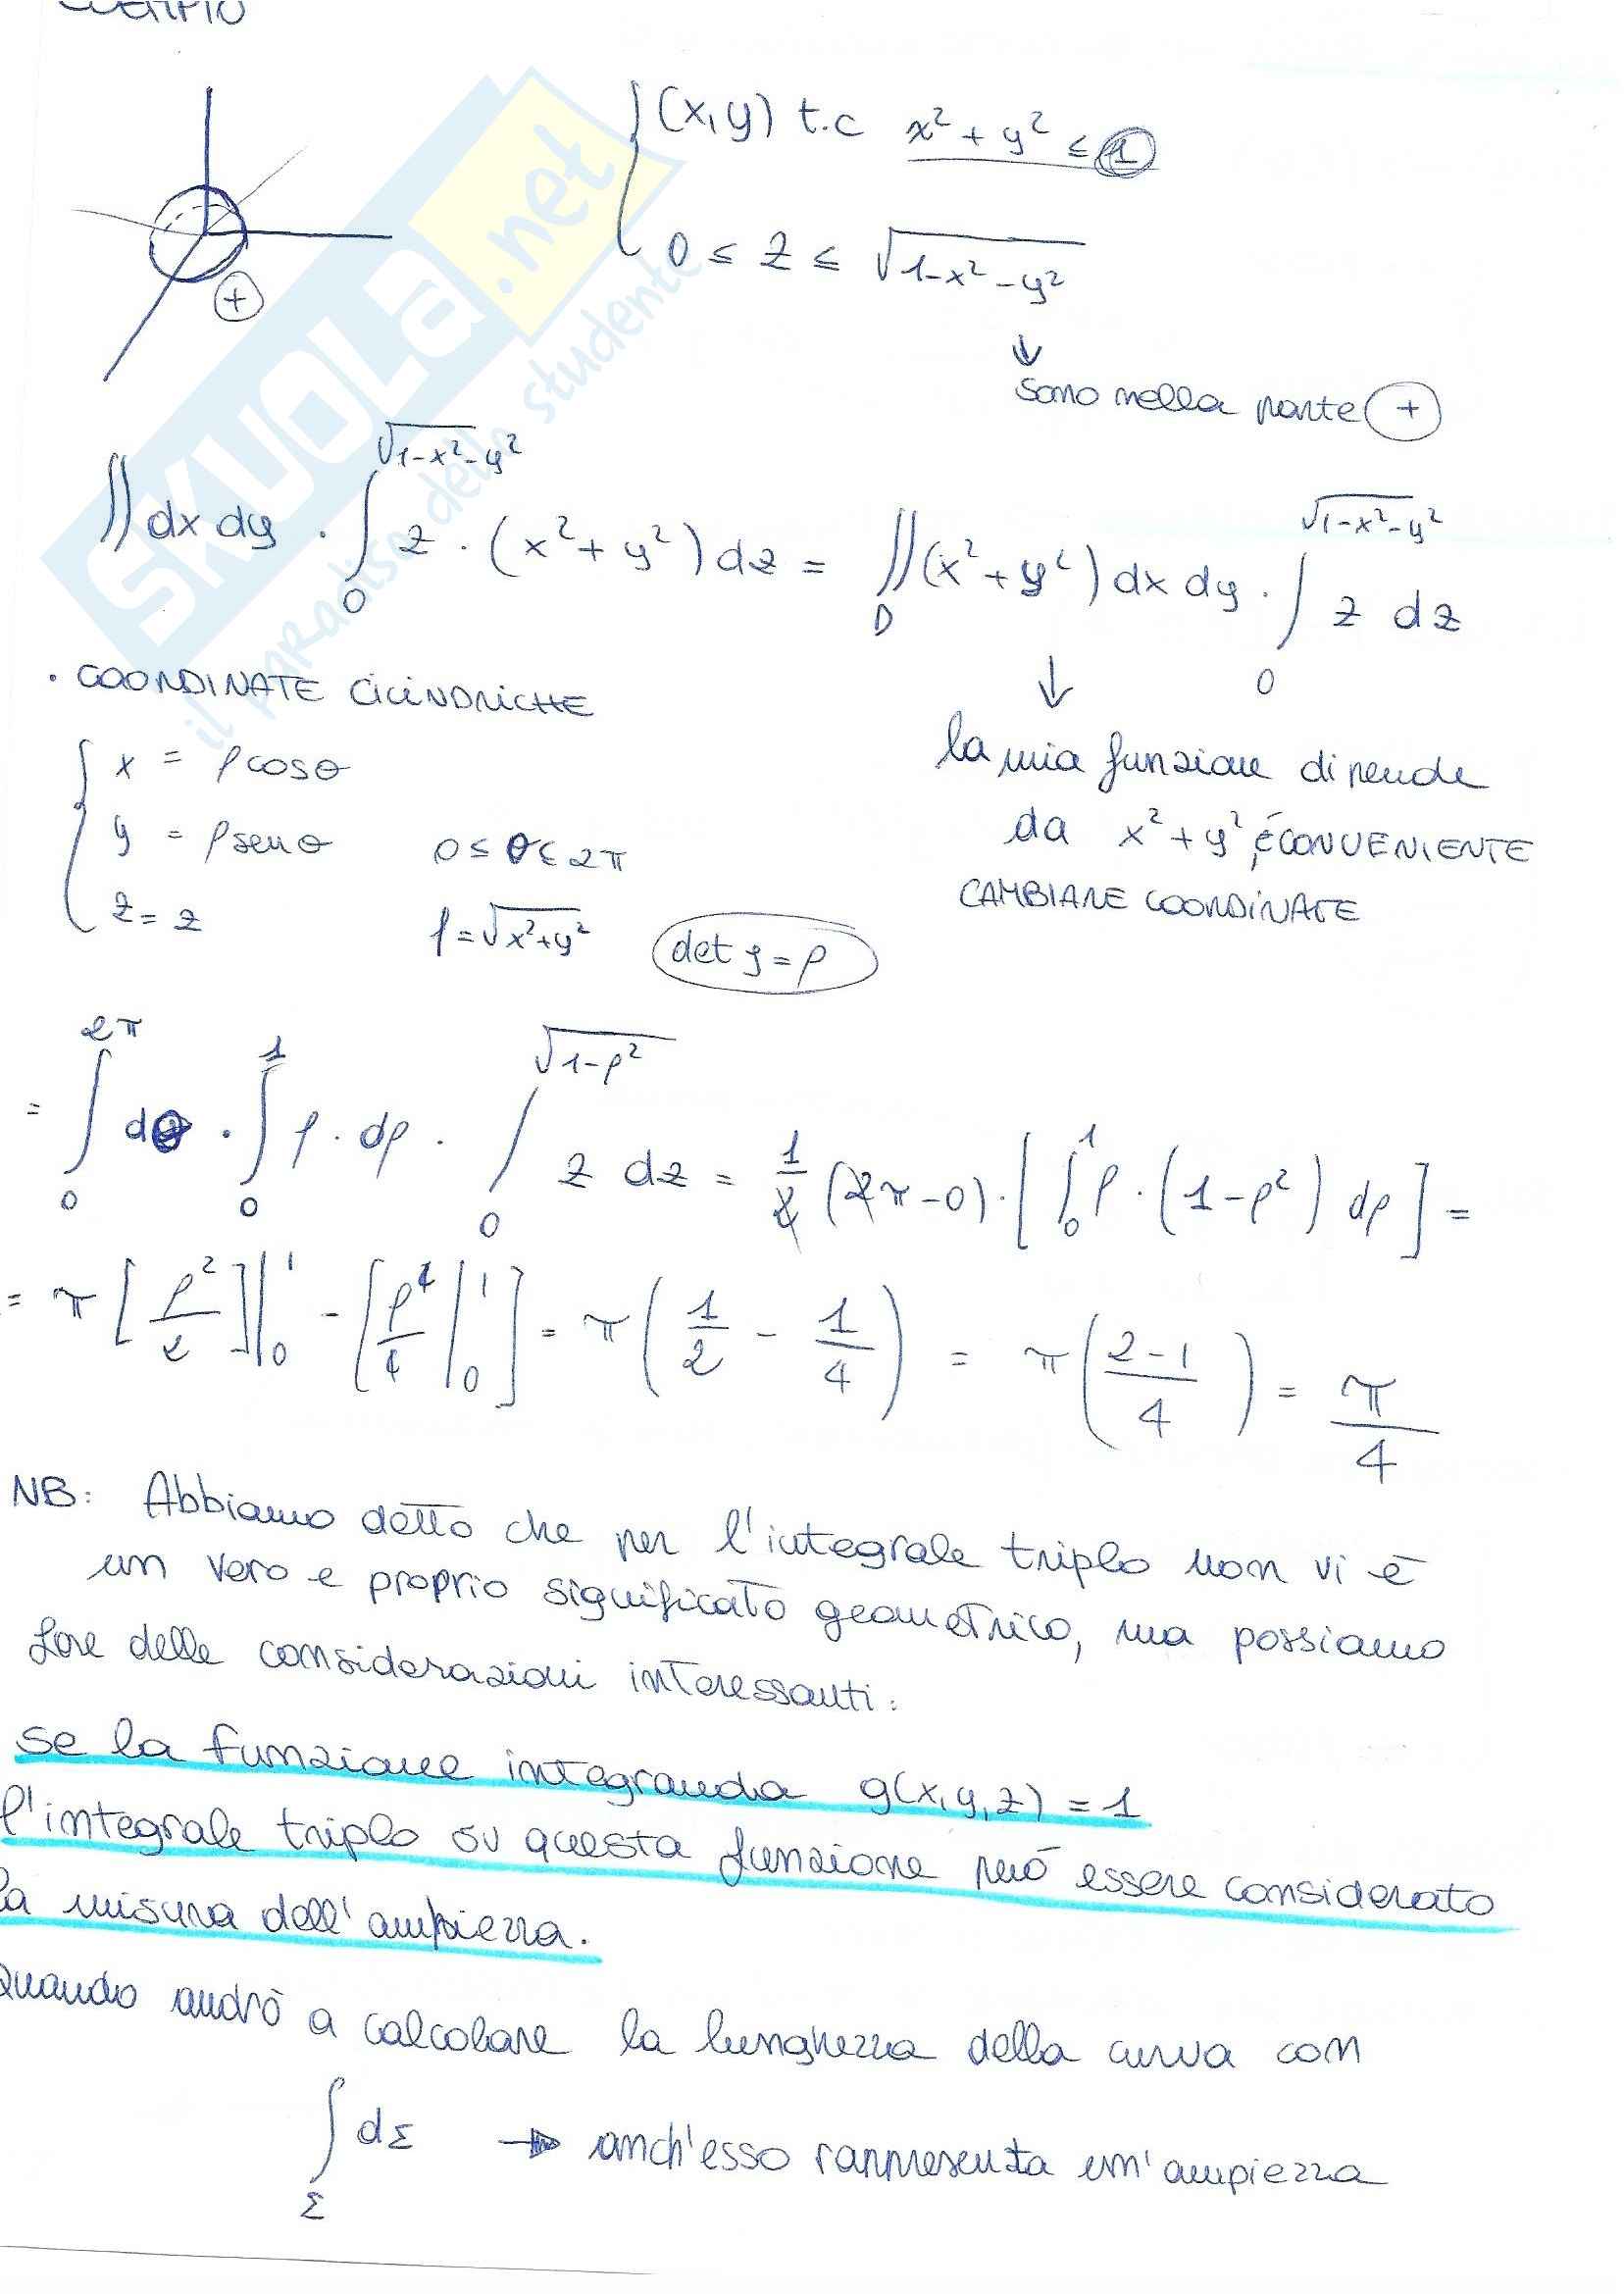 ESEMPIO
{ (x,y) t.c x² + y² ≤ 1
0 ≤ z ≤ √1-x²-y²
↓
sono nella parte +
+
∬ dx dy · ∫₀^√1-x²-y² z · (x² + y²) dz = ∬_D (x² + y²) dx dy · ∫₀^√1-x²-y² z dz
· COORDINATE CILINDRICHE
↓
la mia funzione dipende
da x² + y², é CONVENIENTE
CAMBIARE COORDINATE
{ x = ρ cosθ
y = ρ senθ 0 ≤ θ ≤ 2π
z = z ρ = √x²+y² det J = ρ
= ∫₀^2π dθ · ∫₀^1 ρ · dρ · ∫₀^√1-ρ² z dz = 1/2 (2π-0) · [ ∫₀^1 ρ · (1-ρ²) dρ ] =
= π [ρ²/2]|₀^1 - [ρ⁴/4 |₀^1 ] = π (1/2 - 1/4) = π (2-1/4) = π/4
NB: Abbiamo detto che per l'integrale triplo non vi è
un vero e proprio significato geometrico, ma possiamo
fare delle considerazioni interessanti:
se la funzione integranda g(x,y,z) = 1
l'integrale triplo su questa funzione può essere considerato
la misura dell'ampiezza.
Quando andrò a calcolare la lunghezza della curva con
∫_Σ dΣ → anch'esso rappresenta un'ampiezza
SKUOLA.net
il paradiso dello studente